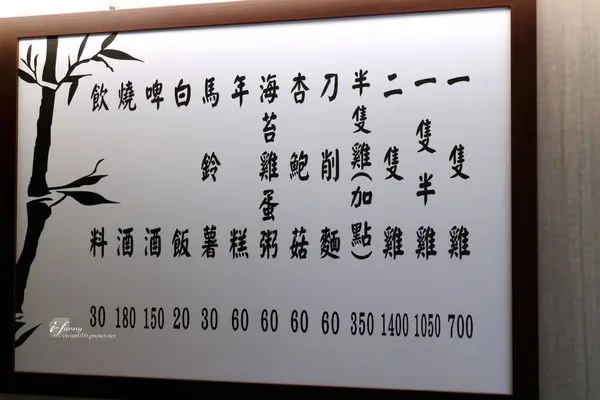 一隻雞 700
一隻半雞 1050
二隻雞 1400
半隻雞(加點) 350
刀削麵 60
杏鮑菇 60
海苔雞蛋粥 60
年糕 60
馬鈴薯 30
白飯 20
啤酒 150
燒酒 180
飲料 30
i-funny
vivian010.pixnet.net